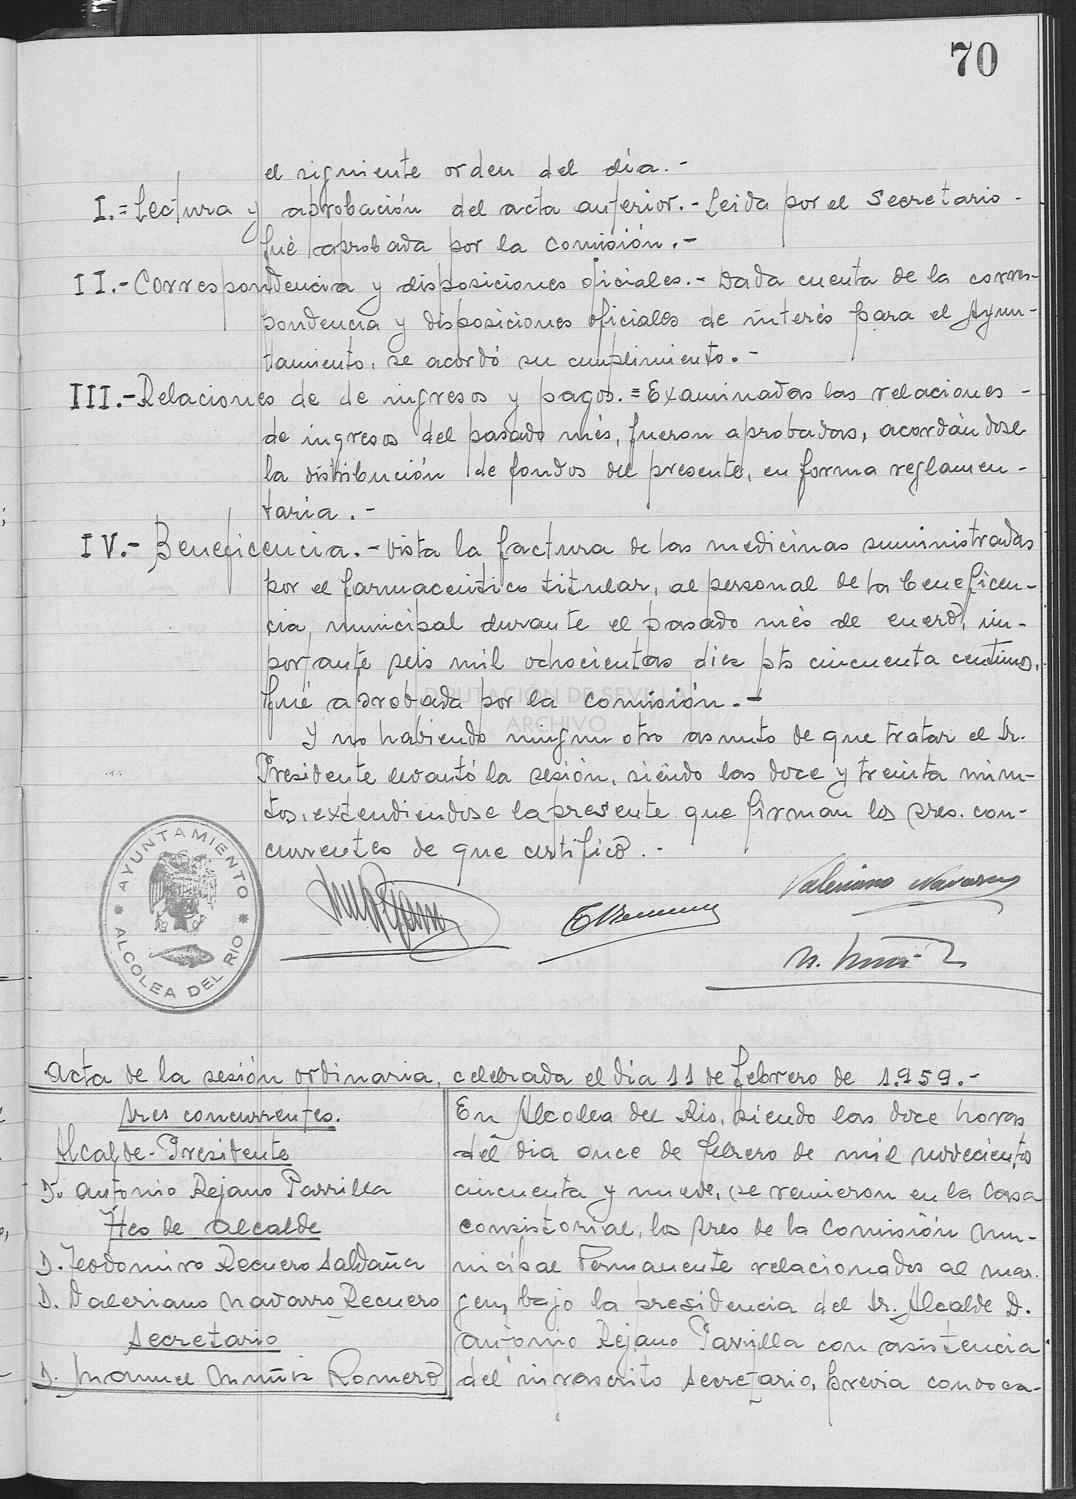 70
el siguiente orden del día.-
I.= Lectura y aprobación del acta anterior.- Leida por el Secretario-
fué aprobada por la Comisión.-
II.- Correspondencia y disposiciones oficiales.- Dada cuenta de la corres-
pondencia y disposiciones oficiales de interés para el Ayun-
tamiento, se acordó su cumplimiento.-
III.- Relaciones de de ingresos y pagos.= Examinadas las relaciones-
de ingresos del pasado més, fueron aprobadas, acordándose
la distribución de fondos del presente, en forma reglamen-
taria.-
IV.- Beneficencia.- Vista la factura de las medicinas suministradas
por el farmaceútico titular, al personal de la Beneficen-
cia municipal durante el pasado més de enero, im-
portante seis mil ochocientas diez pts cincuenta centimos,
fué aprobada por la Comisión.-
DIPUTACIÓN DE SEVILLA
ARCHIVO
Y no habiendo ningun otro asunto de que tratar el Sr.
Presidente levantó la sesión, siendo las doce y treinta minu-
tos, extendiendose la presente que firman los sres. con-
currentes de que certifico.-
AYUNTAMIENTO
ALCOLEA DEL RIO
Valeriano Navarro
Acta de la sesión ordinaria, celebrada el día 11 de febrero de 1.959.-
Sres concurrentes.
Alcalde-Presidente
D. Antonio Rejano Parrilla
Ttes de alcalde
D. Teodomiro Recuero Saldaña
D. Valeriano Navarro Recuero
Secretario
D. Manuel Muñiz Romero
En Alcolea del Rio, siendo las doce horas
del dia once de febrero de mil novecientos
cincuenta y nueve, se reunieron en la Casa
consistorial, los Sres de la Comisión Mu-
nicipal Permanente relacionados al mar-
gen, bajo la presidencia del Sr. Alcalde D.
Antonio Rejano Parrilla con asistencia
del infrascrito Secretario, previa convoca-